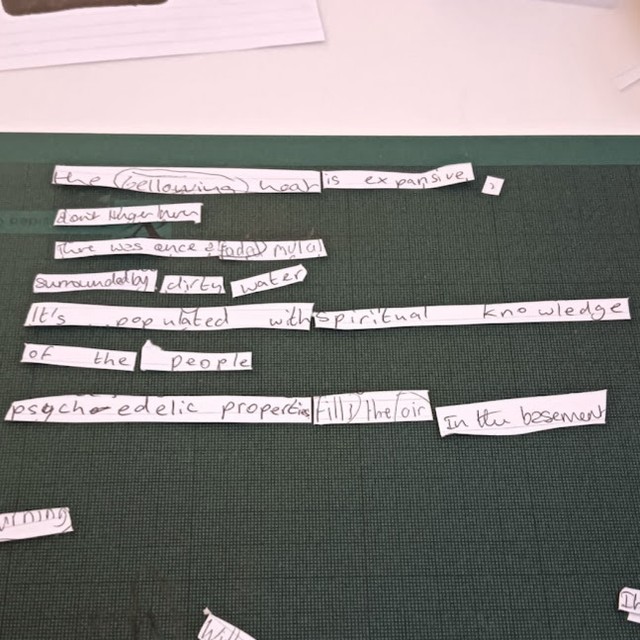 the bellowing hoar is expansive,
dont
There was once a
surrounded by dirty water
It's populated with spiritual knowledge
of the people
psychedelic properties fill the air In the basement